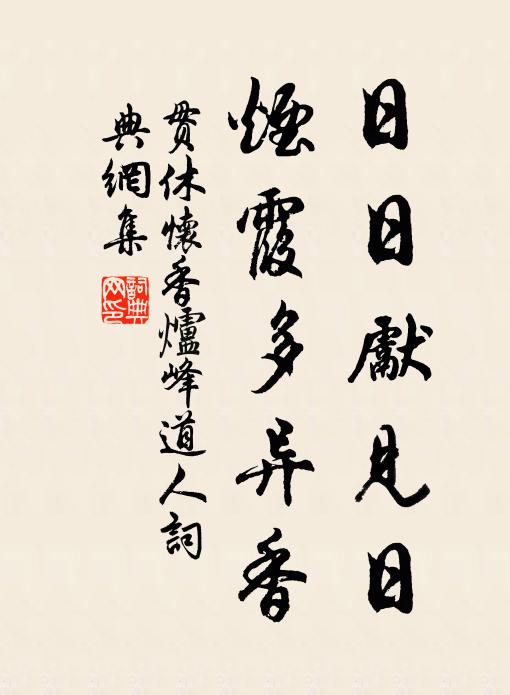 日日獻見日
煙霞多异香
貫休懷香爐峰道人詞
典網集
詞典
网印